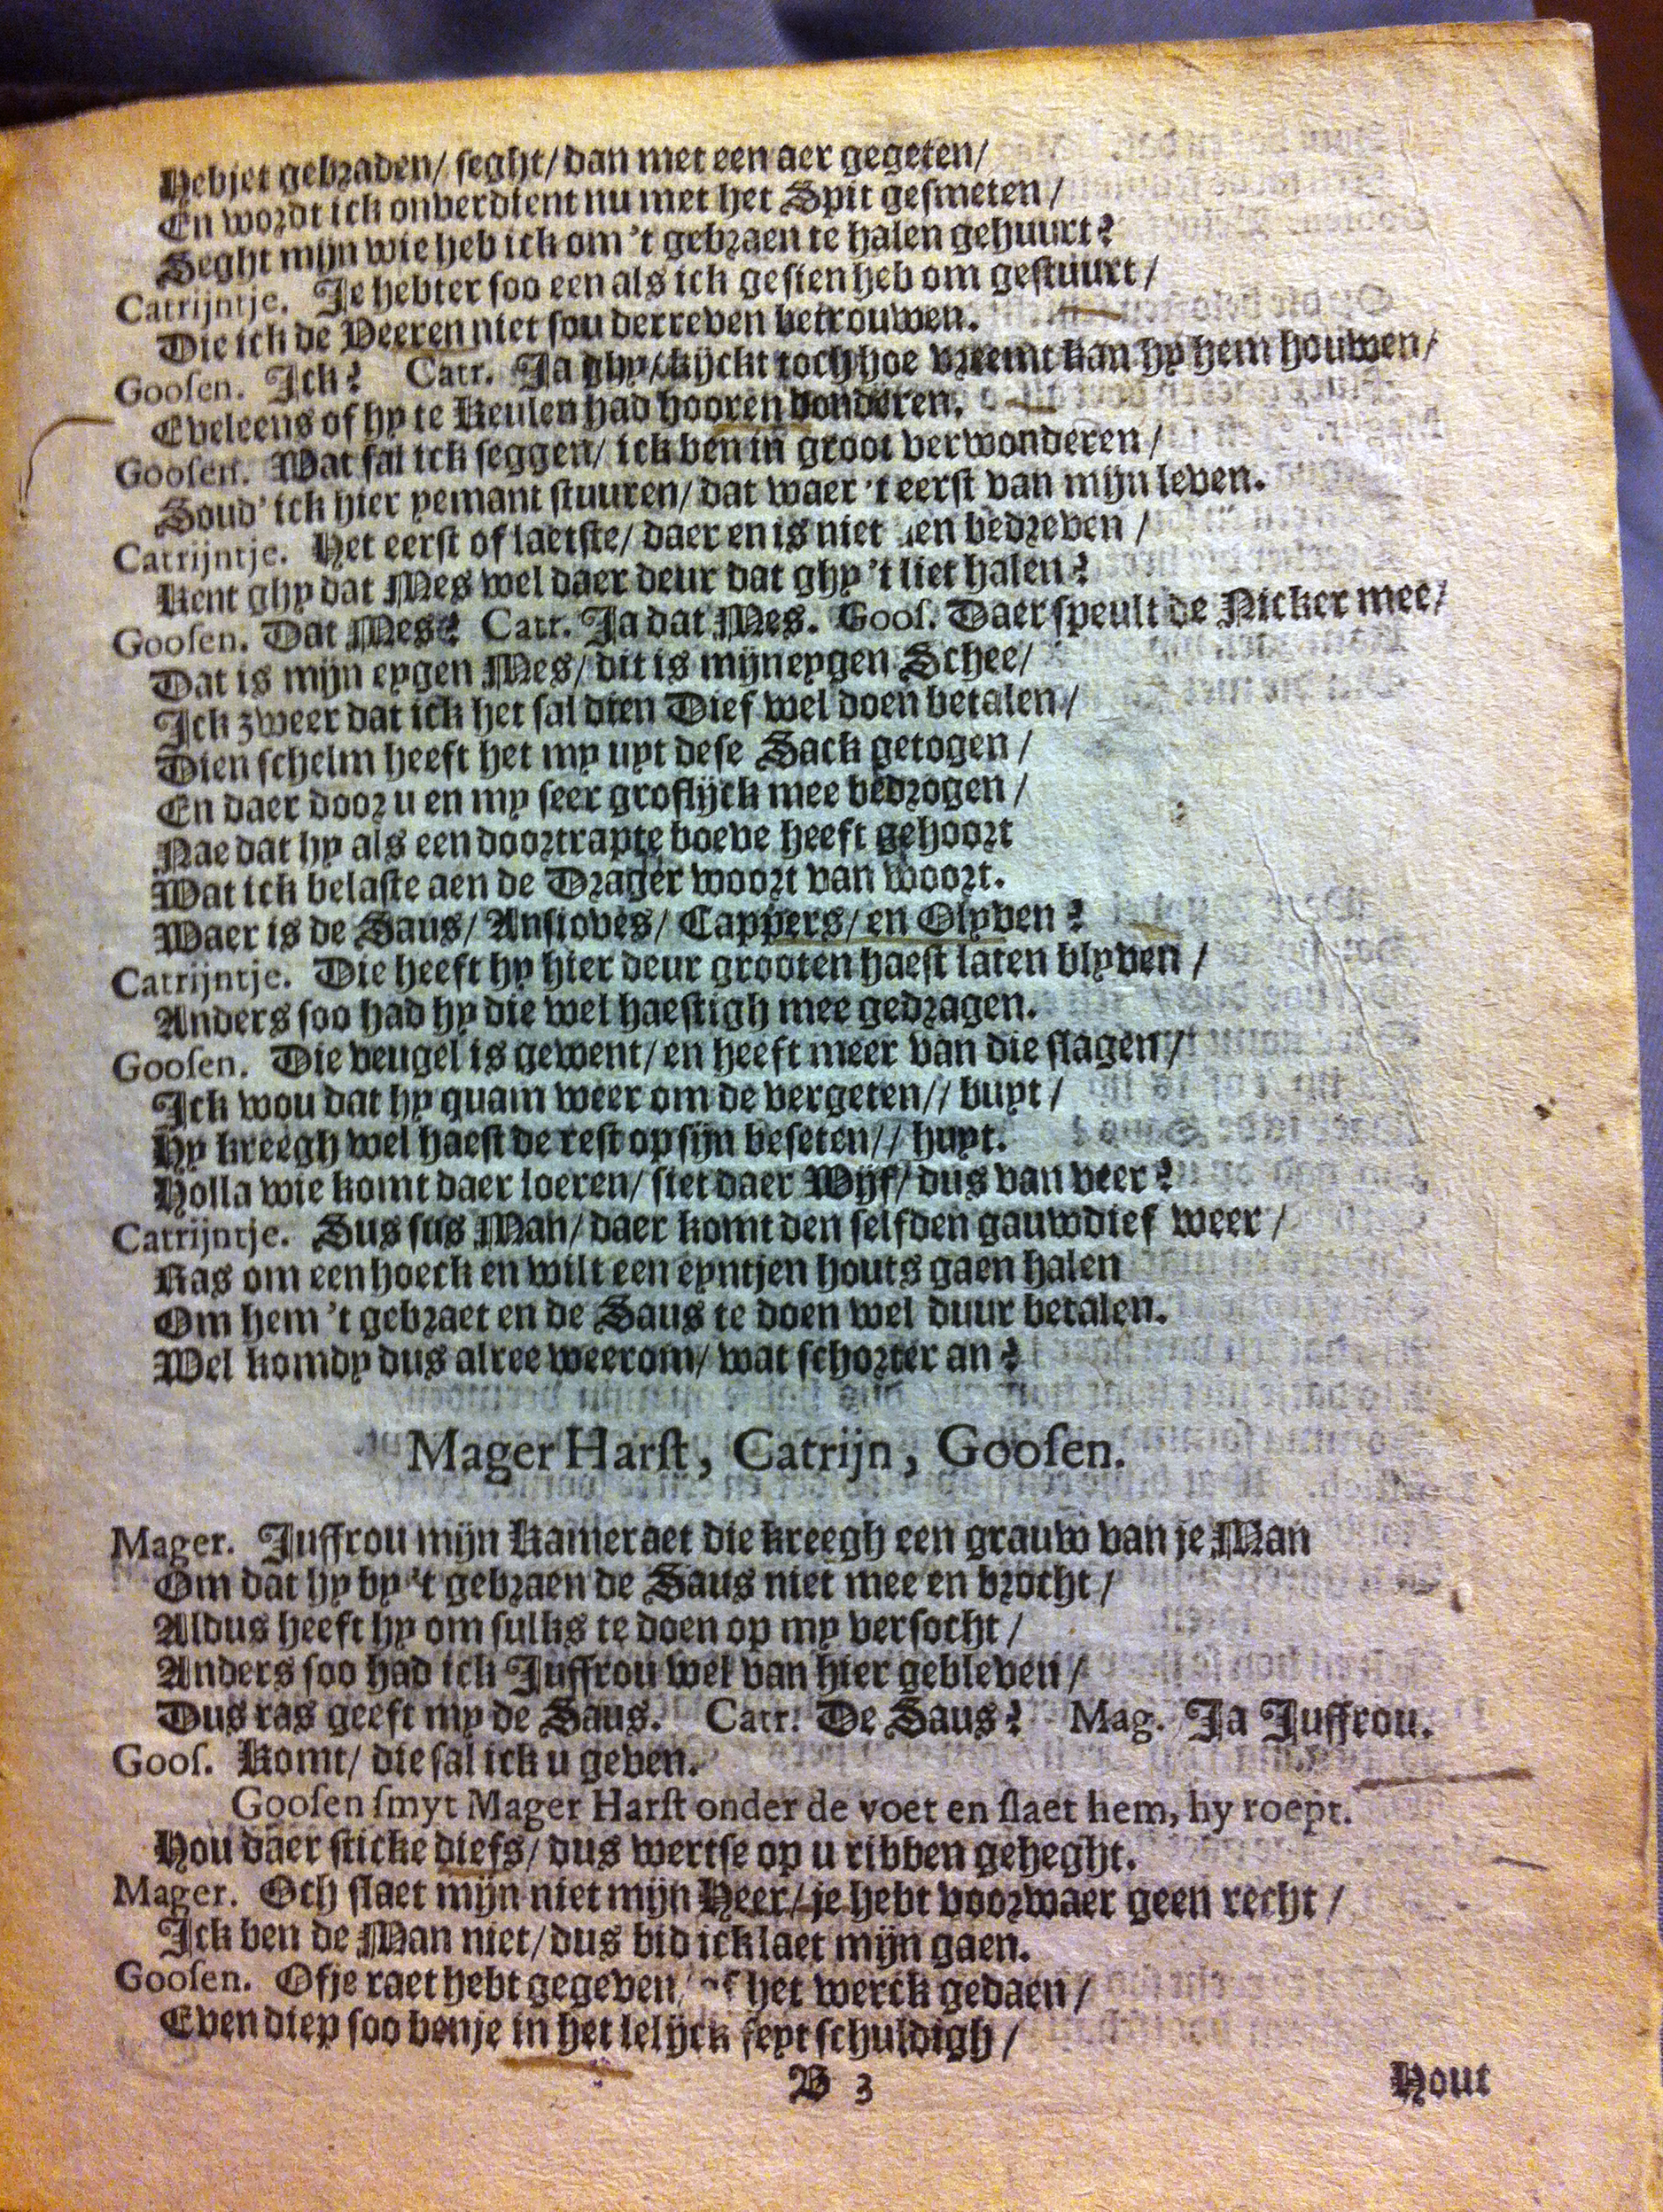 Hebjet gebraden/ seght/ dan met een aer gegeten/
En wordt ick onverdient nu met het Spit gesmeten/
Seght mijn wie heb ick om 't gebraen te halen gehuurt?
Catrijntje. Je hebter soo een als ick gesien heb om gestuurt/
Die ick de Veeren niet sou derreven betrouwen.
Goosen. Ick? Catr. Ja ghy/ kijckt toch hoe vreemt kan hy hem houwen/
Eveleens of hy te Keulen had hooren donderen.
Goosen. Wat sal ick seggen/ ick ben in groot verwonderen/
Soud' ick hier yemant stuuren/ dat waer 't eerst van mijn leven.
Catrijntje. Het eerst of laetste/ daer en is niet en bedreven/
Kent ghy dat Mes wel daer deur dat ghy 't liet halen?
Goosen. Dat Mes? Catr. Ja dat Mes. Goos. Daer speult de Nicker mee/
Dat is mijn eygen Mes/ dit is mijn eygen Schee/
Ick zweer dat ick het sal dien Dief wel doen betalen/
Dien schelm heeft het my uyt dese Sack getogen/
En daer door u en my seer groflijck mee bedrogen/
Nae dat hy als een doortrapte boeve heeft gehoort
Wat ick belaste aen de Drager woort van woort.
Waer is de Saus/ Ansioves/ Cappers/ en Olyven?
Catrijntje. Die heeft hy hier deur grooten haest laten blyven/
Anders soo had hy die wel haestigh mee gedragen.
Goosen. Die veugel is gewent/ en heeft meer van die slagen/
Ick wou dat hy quam weer om de vergeten// buyt/
Hy kreegh wel haest de rest op sijn beseten// huyt.
Holla wie komt daer loeren/ siet daer Wijf/ dus van veer?
Catrijntje. Sus sus Man/ daer komt den selfden gauwdief weer/
Ras om een hoeck en wilt een eyntjen houts gaen halen
Om hem 't gebraet en de Saus te doen wel duur betalen.
Wel komdy dus alree weerom/ wat schorter an?
Mager Harst, Catrijn, Goosen.
Mager. Juffrou mijn Kameraet die kreegh een grauw van je Man
Om dat hy by 't gebraen de Saus niet mee en brocht/
Aldus heeft hy om sulks te doen op my versocht/
Anders soo had ick Juffrou wel van hier gebleven/
Dus ras geeft my de Saus. Catr. De Saus? Mag. Ja Juffrou.
Goos. Komt/ die sal ick u geven.
Goosen smyt Mager Harst onder de voet en slaet hem, hy roept.
Hou daer sticke diefs/ dus wertse op u ribben geheght.
Mager. Och slaet mijn niet mijn Heer/ je hebt voorwaer geen recht/
Ick ben de Man niet/ dus bid ick laet mijn gaen.
Goosen. Of je raet hebt gegeven/ of het werck gedaen/
Even diep soo benje in het lelijck feyt schuldigh/
B 3
Hout